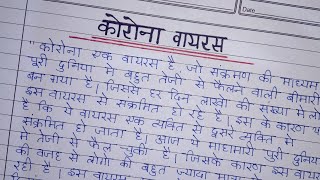 Date
कोरोना वायरस
"कोरोना एक वायरस है जो संक्रमण की माध्यम
पूरी दुनिया में बहुत तेजी से फैलने वाली बीमारी
बन गया है। जिससे हर दिन लाखों की संख्या में लो
इस वायरस से संक्रमित हो रहे है। इस के कारण य
है कि ये वायरस एक व्यक्ति से दूसरे व्यक्ति में
संक्रमित हो जाता है। आज ये महामारी पूरी दुनिया
में तेजी से फैल चुकी है। जिसके कारण इस वाय
की वजह से लोगों को बहुत ज्यादा
रही है। इस वायरस